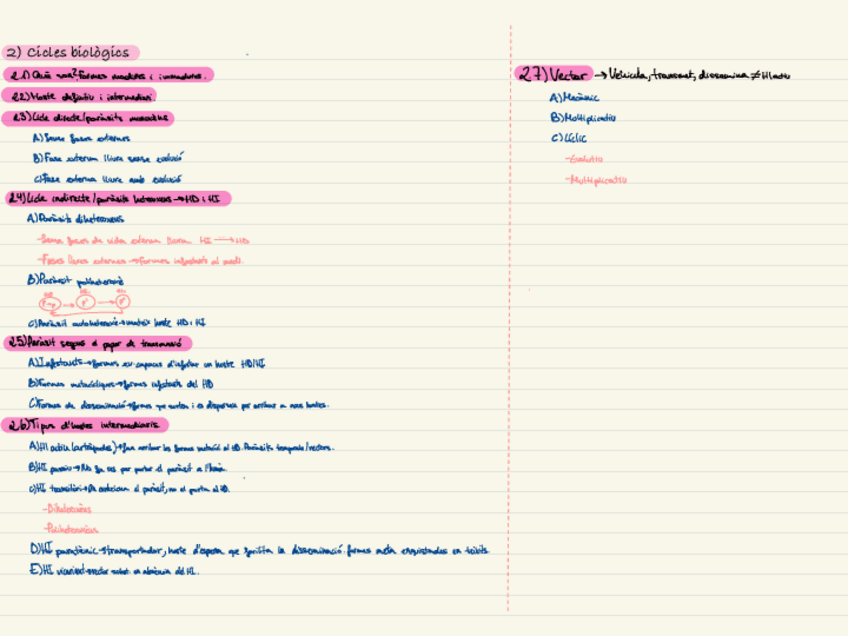 2) Cicles biològics
2.1) Què són? Formes madures i immadures.
2.2) Hoste definitiu i intermediari.
2.3) Cicle directe/paràsits monoxens
A) Sense fases externes
B) Fase externa lliure sense evolució
C) Fase externa lliure amb evolució
2.4) Cicle indirecte/paràsits heteroxens → HD i HI
A) Paràsits diheteroxens
- Sense fases de vida externa lliure HI → HD
- Fases lliures externes → formes infestants al medi.
B) Paràsit poliheteroxè
C) Paràsit autoheteroxè → mateix hoste HD i HI
2.5) Paràsit segons el paper de transmissió
A) Infestants → formes capaces d'infestar un hoste HD/HI
B) Formes metacícliques → formes infestants del HD
C) Formes de disseminació → formes que surten i es dispersen per arribar a nous hostes.
2.6) Tipus d'hostes intermediaris
A) HI actiu (artròpodes) → fan arribar les formes al HD. Paràsits temporals/vectors.
B) HI passiu → No fa res per portar el paràsit a l'hoste.
C) HI transitori → el paràsit, no el porta al HD.
- Diheteroxens
- Poliheteroxens
D) HI paratènic → transportador, hoste d'espera que facilita la disseminació. formes enquistades en teixits.
E) HI vicariant → en absència del HI.
2.7) Vector → Vehicula, transmet, dissemina ≠ HI actiu
A) Mecànic
B) Multiplicatiu
C) Cíclic
- Evolutiu
- Multiplicatiu